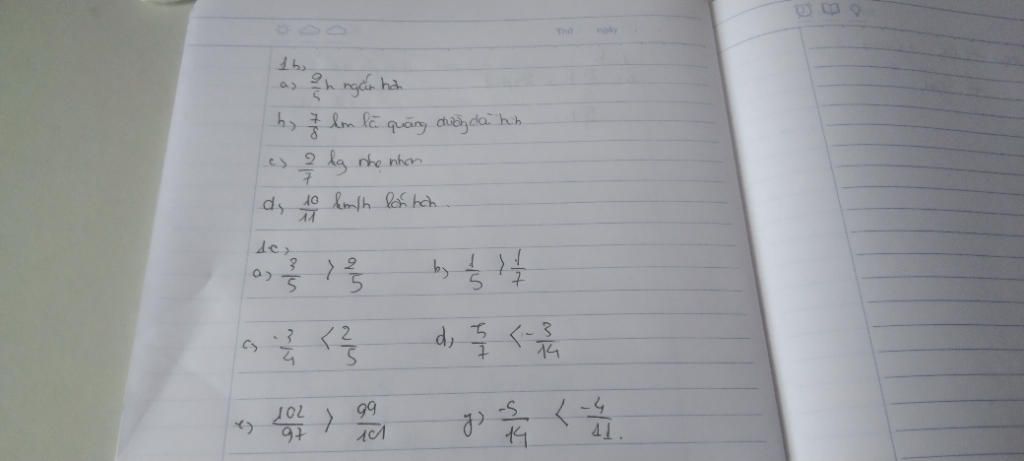 Thứ ngày
1b,
a, 2/5 h ngắn hơn
b, 7/8 km là quãng đường dài hơn
c, 2/7 kg nhẹ hơn
d, 10/11 km/h lớn hơn.
1c,
a, 3/5 > 2/5 b, 1/5 > 1/7
c, -3/4 < 2/5 d, 5/7 < -3/14
e, 102/97 > 99/101 g, -5/14 < -4/11.